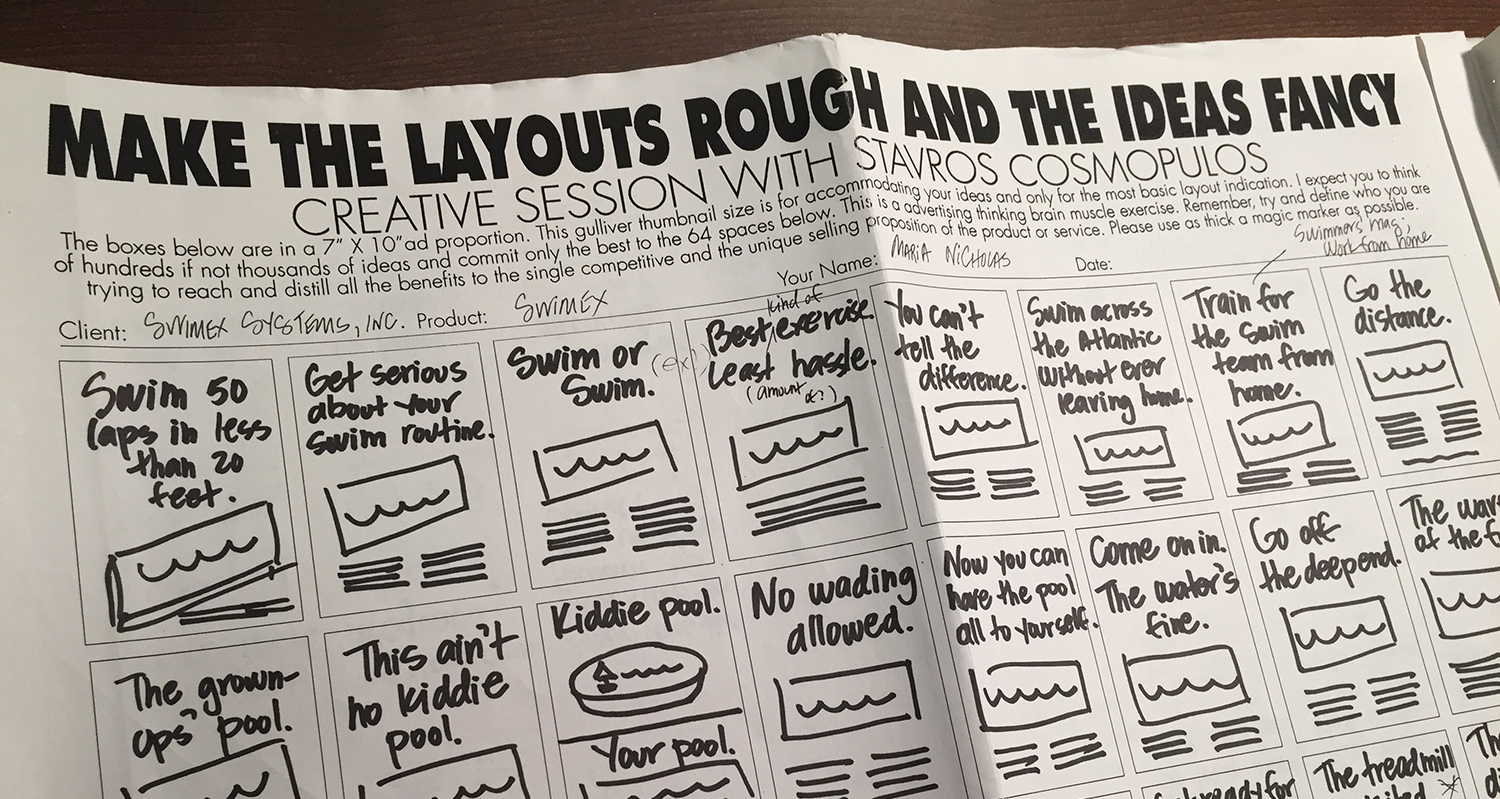 MAKE THE LAYOUTS ROUGH AND THE IDEAS FANCY
CREATIVE SESSION WITH STAVROS COSMOPULOS
The boxes below are in a 7" X 10"ad proportion. This gulliver thumbnail size is for accommodating your ideas and only for the most basic layout indication. I expect you to think
of hundreds if not thousands of ideas and commit only the best to the 64 spaces below. This is a advertising thinking brain muscle exercise. Remember, try and define who you are
trying to reach and distill all the benefits to the single competitive and the unique selling proposition of the product or service. Please use as thick a magic marker as possible.
Client: SWIMEX SYSTEMS, INC. Product: SWIMEX Your Name: MARIA NICHOLAS Date:
Swimmers mag;
Work from home
Swim 50
laps in less
than 20
feet.
Get serious
about your
swim routine.
Swim or
Swim.
(ex)
kind of
Best/exercise.
Least hassle.
(amount
of?)
You can't
tell the
difference.
Swim across
the Atlantic
without ever
leaving home.
Train for
the swim
team from
home.
Go the
distance.
The grown-
ups' pool.
This ain't
no kiddie
pool.
Kiddie pool.
Your pool.
No wading
allowed.
Now you can
have the pool
all to yourself.
Come on in.
The water's
fine.
Go off
the deep end.
The
at the
ready for
The treadmill